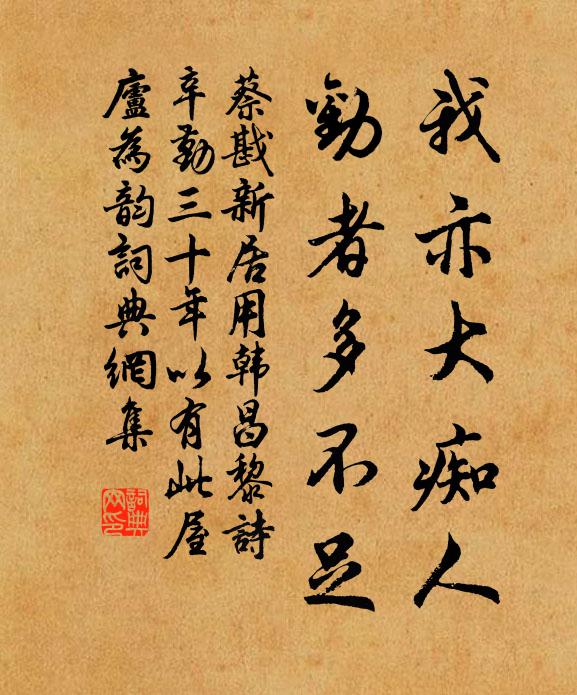 我亦大痴人
勤者多不足
蔡戡新居用韩昌黎詩
辛勤三十年以有此屋
廬為韵詞典網集
詞典網印